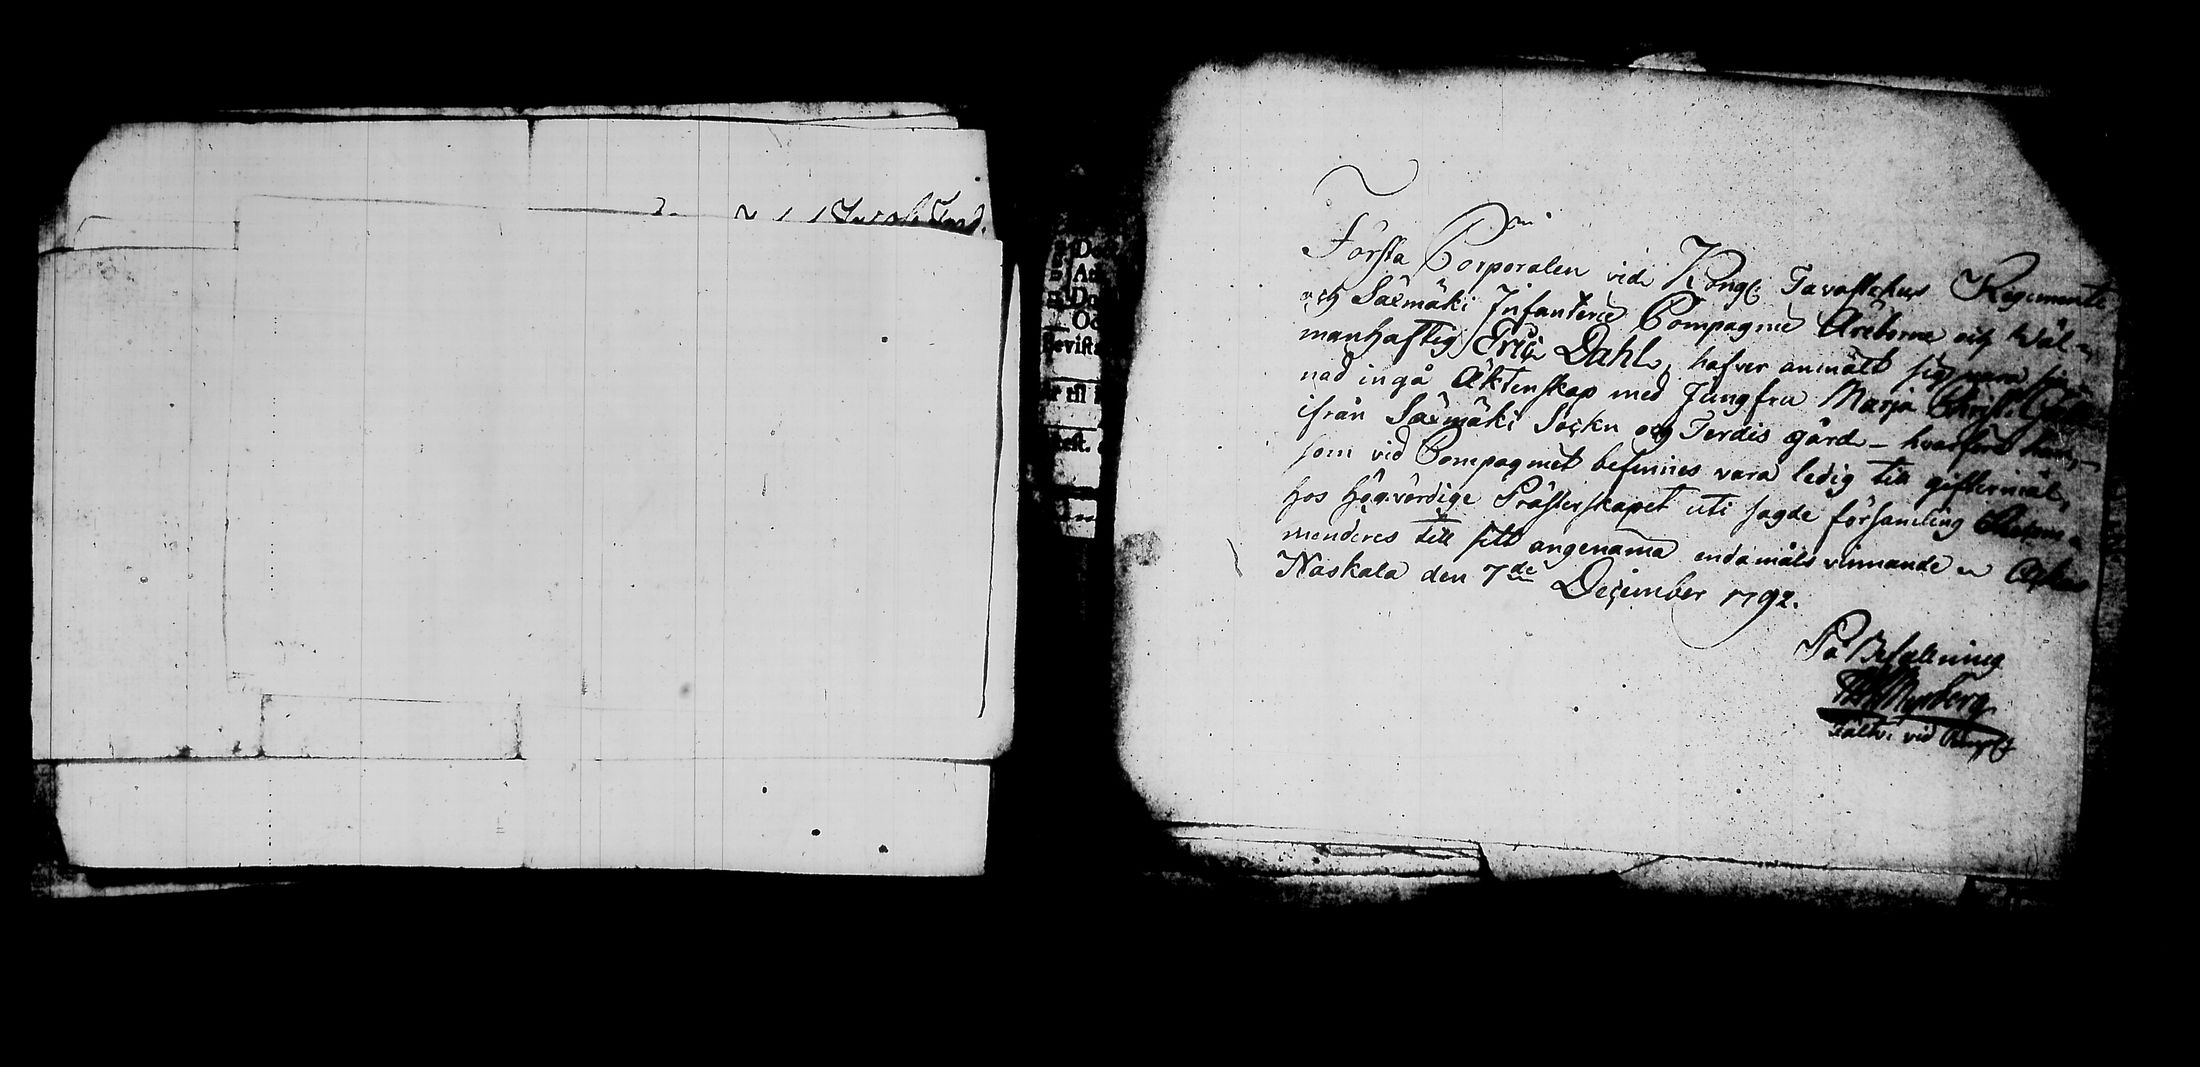 Första Corporalen vid Kongl. Tavastehus Regemente
och Säxmäki Infanterie Compagnie Äreborne och Wäl-
manhaftig Eric Dahl, hafver anmält sig vara sin-
nad ingå Äktenskap med Jungfru Marja Christ.
ifrån Säxmäki Sockn och Terdis gård – hvarföre han,
som vid Compagniet befinnes vara ledig till giftermål,
hos Högvördige Prästerskapet uti sagde församling Recom-
menderes till sitt angenäma endamåls vinnande
Naskala den 7de December 1792.
På Befallning
Nyberg
vid Comp.
De
Oc
evist
r til
est.